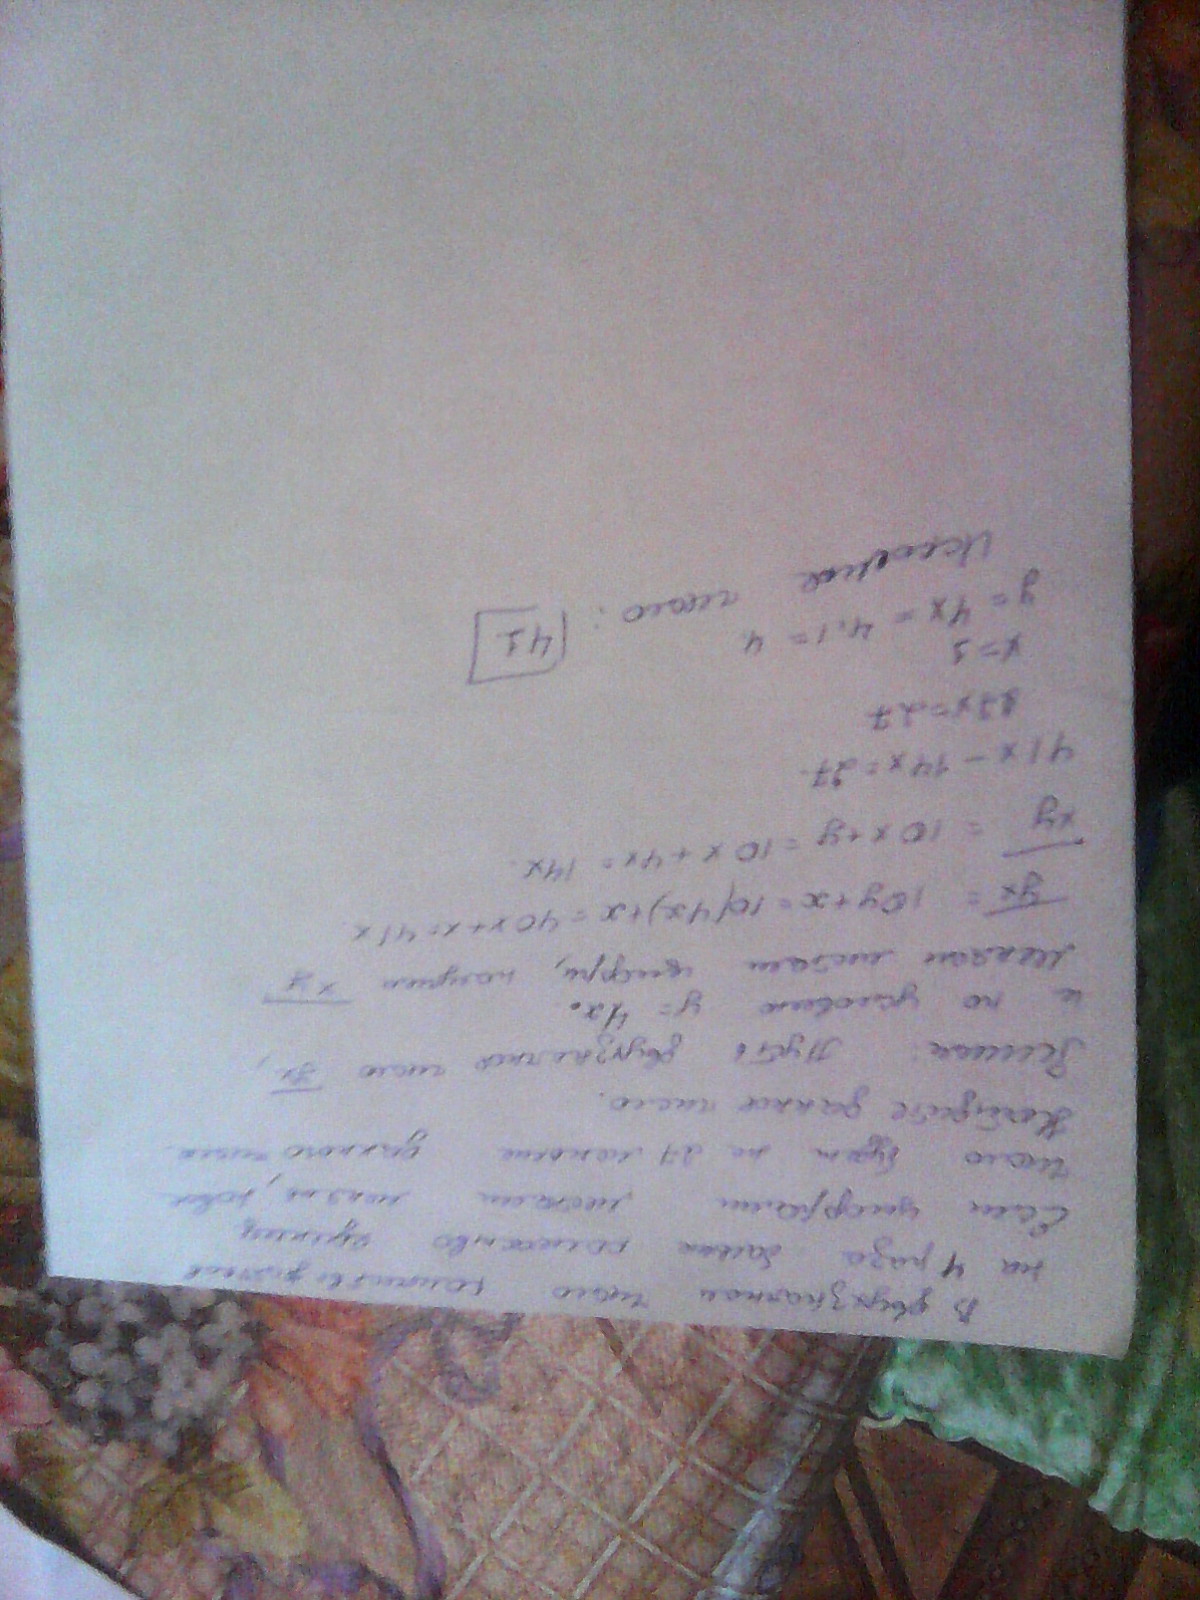 В двухзначном число количество десятков
на 4 раза больше количество единиц
Если цифрами местами менять, новое
число будет на 27 меньше данного числа.
Найдите данное число.
Решение: Пусть двухзначное число yx,
и по условию y = 4x.
Меняем местам цифры, получим xy
yx = 10y+x = 10(4x)+x = 40x+x = 41x.
xy = 10x+y = 10x+4x = 14x.
41x - 14x = 27.
27x = 27
x = 1
y = 4x = 4.1 = 4
Искомое число: 41